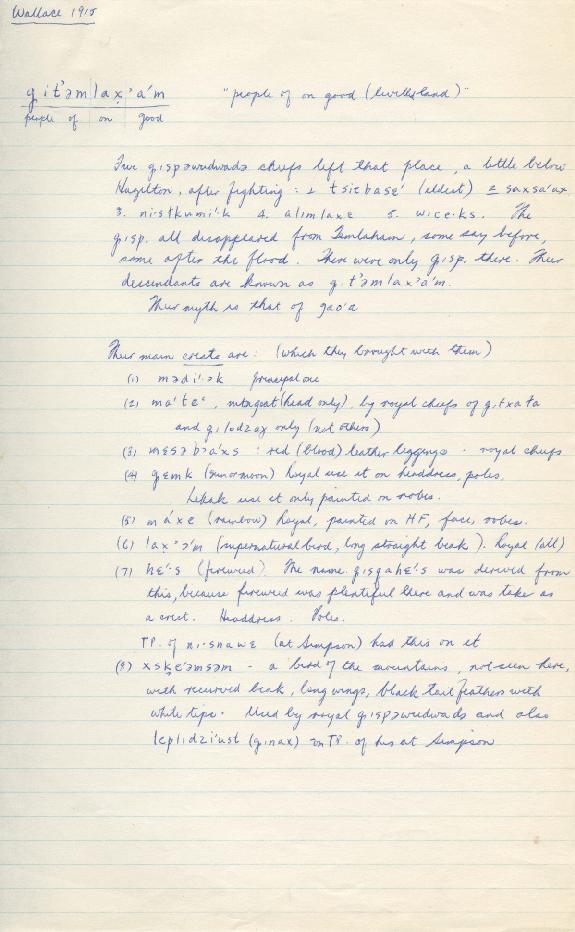 Wallace 1915
g̣it'əmlax̣'a´m "people of on good (level land)"
people of on good
Five g̣ispəwudwadə chiefs left that place, a little below
Hazelton, after fighting: 1 tsiɛbasɛ´ (eldest) 2 saxsa´ax
3. ni·stkumi´·k 4. alimlaxɛ 5. wicɛiks. The
g̣isp. all disappeared from Temlaham, some say before,
some after the flood. There were only g̣isp. there. Their
descendants are known as g̣it'əmlax'a´m.
Their myth is that of gao´a
Their main crests are: (which they brought with them)
(1) mədi´·ək principal one
(2) ma´tɛ', mtngoat (head only), by royal chiefs of g̣itxała
and g̣ilodzaẋ only (not others)
(3) mɛsəbə´a´xs : red (blood) leather leggings · royal chiefs
(4) g̣ɛmk (sun or moon) Royal use it on headdress, poles,
Lekak use it only painted on robes.
(5) máxɛ (rainbow) Royal, painted on HF, face, robes.
(6) 'lax·ə´m (supernatural bird, long straight beak). Royal (all)
(7) hɛ´·s (fireweed) The name g̣isgahɛ´·s was derived from
this, because fireweed was plentiful there and was take as
a crest. Headdress. Poles.
TP. of ni·snawɛ (at Simpson) had this on it
(8) xskɛ´əmsəm - a bird of the mountains, not seen here,
with recurved beak, long wings, black tail feathers with
white tips. Used by royal g̣ispəwudwadə and also
lɛplidzi´ust (g̣inax) on TP. of his at Simpson